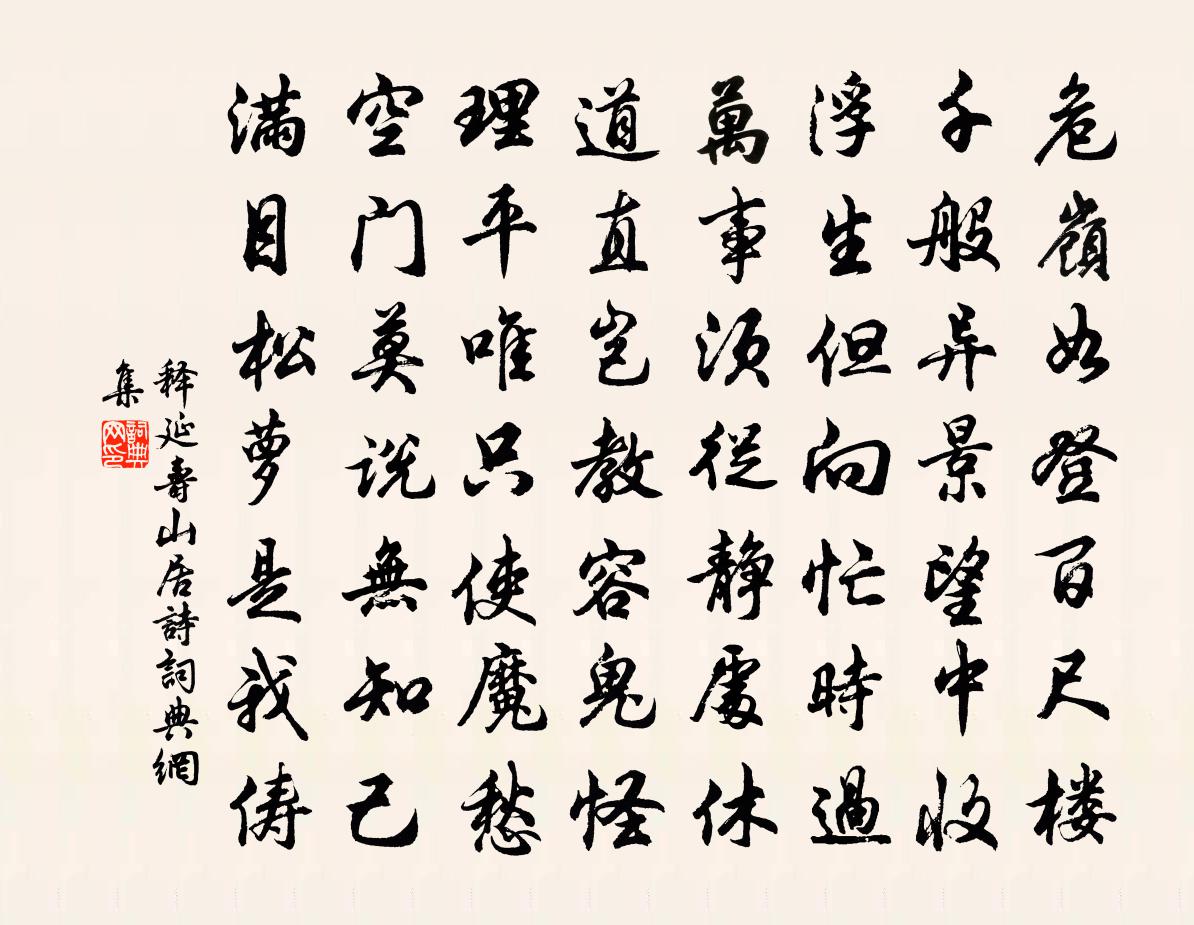 危嶺如登百尺楼
千般异景望中收
浮生但向忙時過
萬事須從静處休
道直豈教容鬼怪
理平唯只使魔愁
空门莫说無知己
满目松萝是我俦
释延壽山居詩詞典網
集
詞典网印